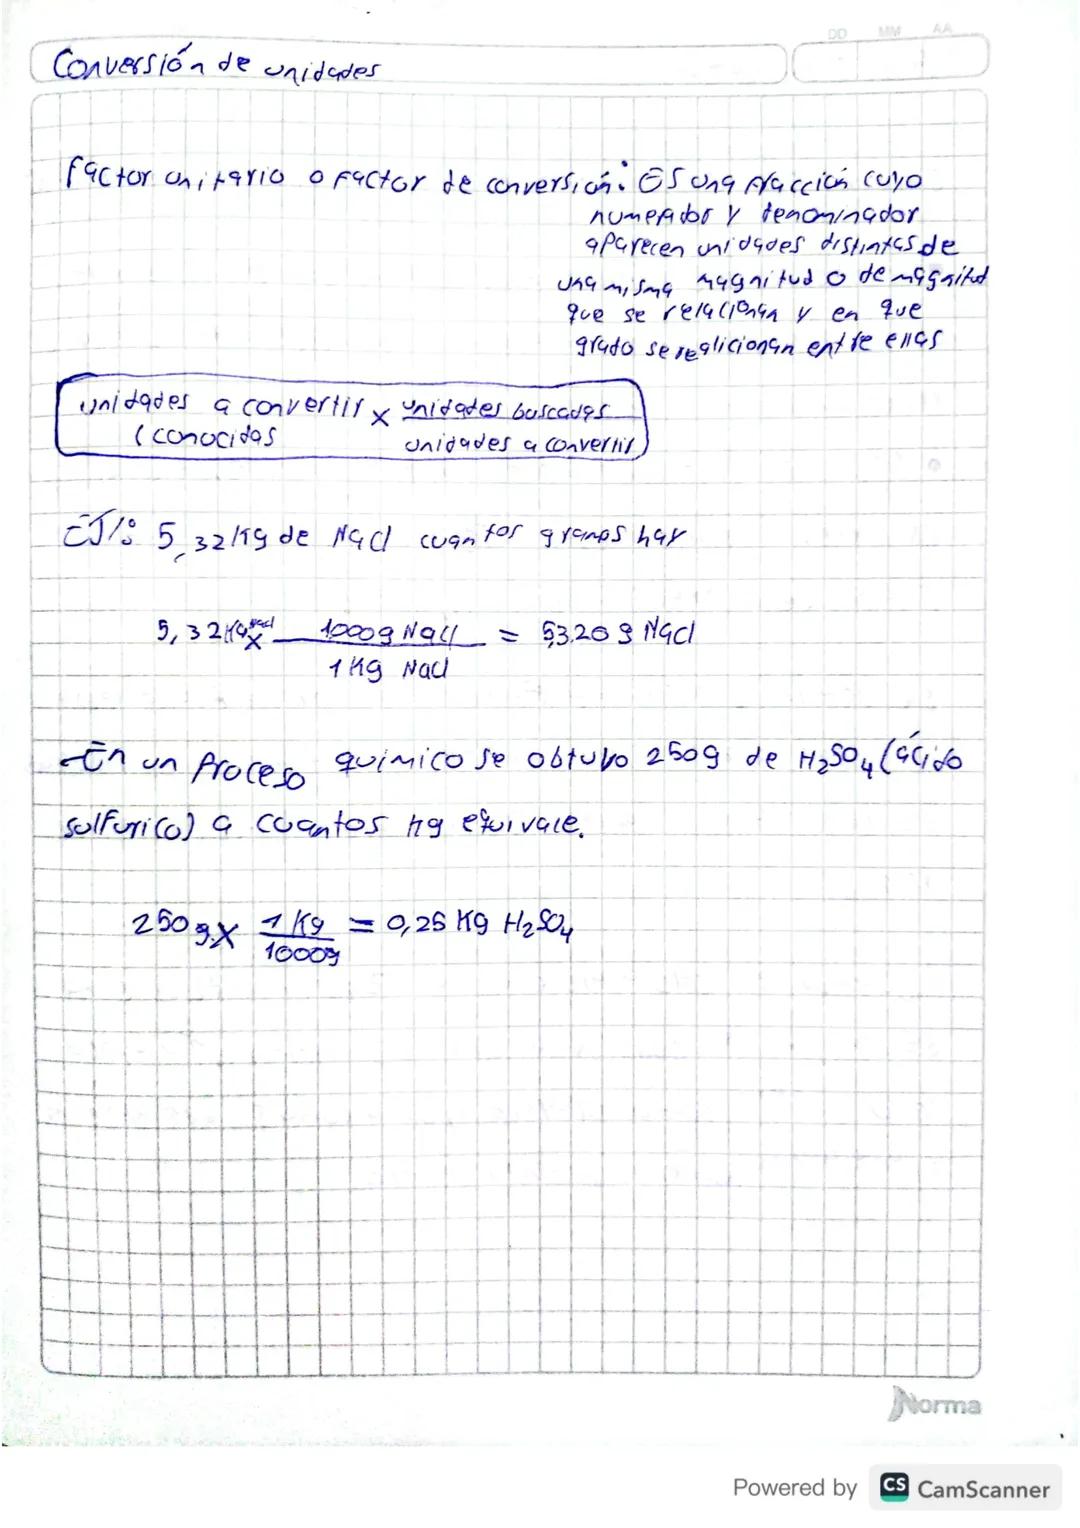 DD MM AA
Conversión de unidades
factor unitario o factor de conversión: Es una fracción cuyo
numerador y denominador
aparecen unidades distintas de
una misma magnitud o de magnitud
que se relacionan y en que
grado se realicionan entre ellas
unidades a convertir x unidades buscadas
(conocidas unidades a convertir
EJ/: 5,32kg de NaCl cuantos gramos hay
5,32Kg NaCl x 1000g NaCl = 5320 g NaCl
1 Kg NaCl
-En un Proceso químico se obtuvo 250g de H₂SO₄ (ácido
sulfurico) a cuantos kg equivale.
250g x 1 Kg = 0,25 Kg H₂SO₄
1000g
Norma
Powered by CS CamScanner